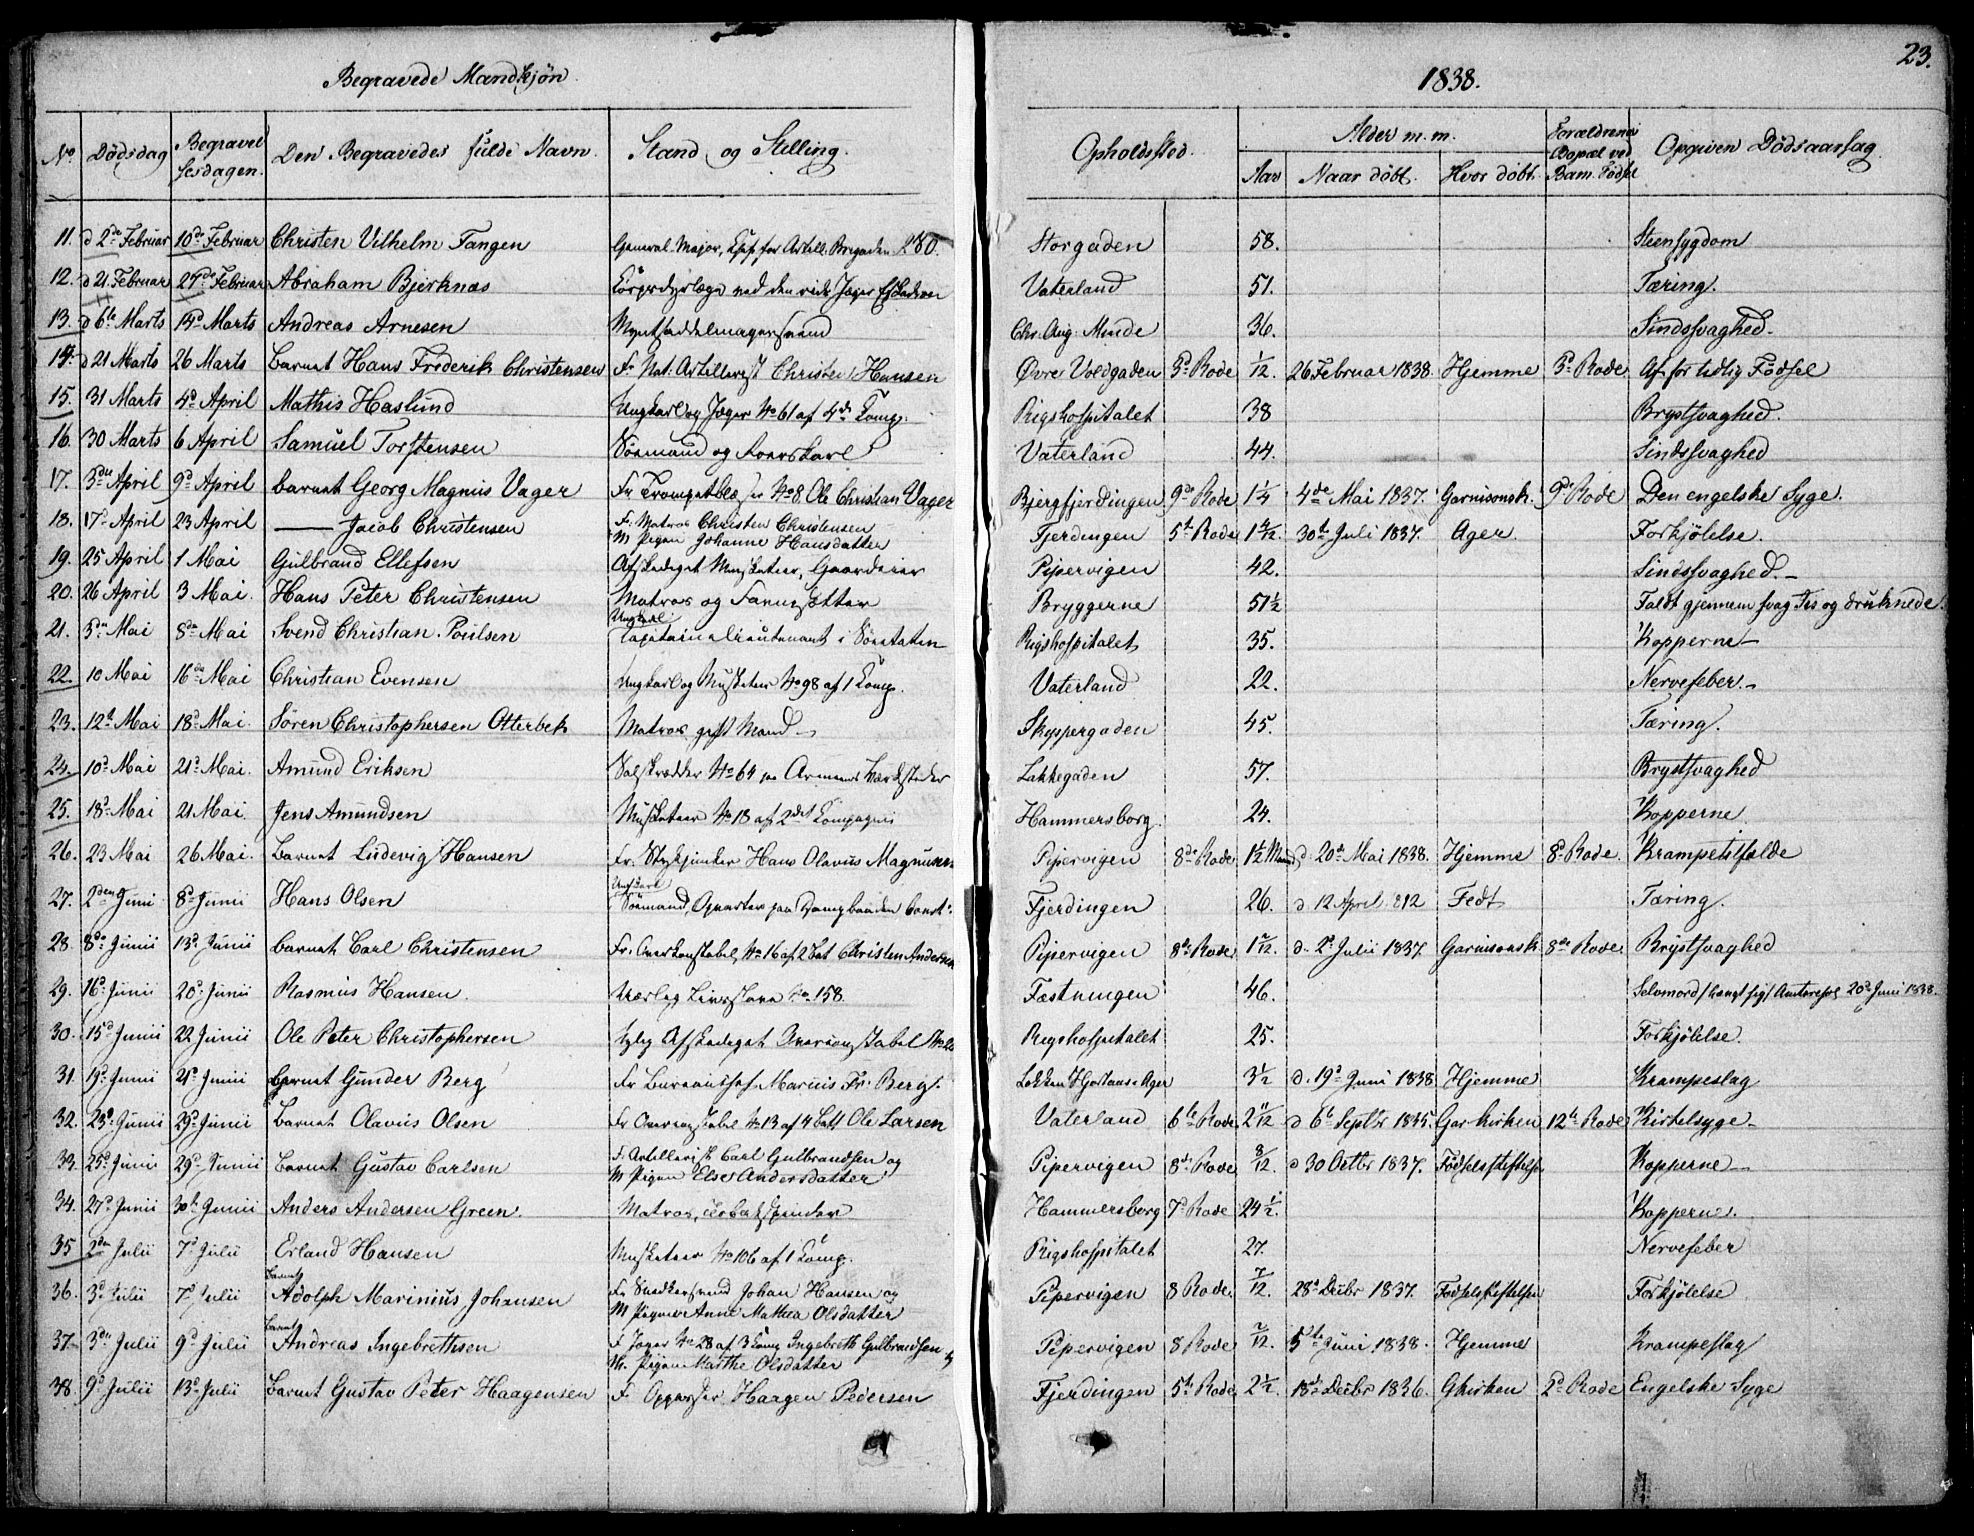 Begravede Mandkjøn.
1838.
23.
No. Dødsdag Begravelsesdagen. Den Begravedes fulde Navn. Stand og Stilling. Opholdssted. Alder m.m. Aar Naar døbt. Hvor døbt. Forældrenes Bopæl ved Barn. Fødsel Opgiven Dødsaarsag.
11. d 2de Februar 10de Februar Christen Vilhelm Tangen General-Major, Chef for Artill. Brigaden Storgaden 58. Steensygdom
12. d 21 Februar 27de Februar Abraham Bjerknæs ved den rid. Jæger Eskadron Vaterland 51. Tæring.
13. d 6te Marts 14d Marts Andreas Arnesen Myntsaddelmagersvend Chr. Aug. Minde 36. Sindssvaghed.
14. d 21 Marts 26 Marts Barnet Hans Frederik Christensen Fr. Nat. Artillerist Christen Hansen Øvre Voldgaden 3d Rode 1/12. 26 Februar 1838. Hjemme 3d Rode. Af for tidlig Fødsel
15. 31 Marts 4d April Mathis Haslund Ungkarl og Jæger No 61 af 4de Komp. Rigshospitalet 38 Brystsvaghed.
16. 30 Marts 6 April Samuel Torstensen Sømand og Vaterland 44. Sindssvaghed
17. 3die April 9d April barnet Georg Magnus Vager Fr Trompetblæser No 8 Ole Christian Vager Bjergfjerdingen 9de Rode 1 1/4 4de Mai 1837. Garnisonsk. 9d Rode Den engelske Syge.
18. 17d April 23 April —— Jacob Christensen Fr. Matros Christen Christensen
M Pigen Johanne Hansdatter Fjerdingen 5t Rode 30d Juli 1837. Ager. Forkjølelse.
19. 25 April 1 Mai Gulbrand Ellefsen Afskediget Musketeer, Gaardeier Pipervigen 42. Sindssvaghed.
20. 26 April 3 Mai. Hans Peter Christensen Matros og Bryggerne 51 1/2 Faldt gjennem svag Iis og druknede.
21. 5te Mai 8de Mai Svend Christian Poulsen Ungkarl
Capitainlieutenant i Søeetaten Rigshospitalet 35. Kopperne
22. 10 Mai 16de Mai Christian Evensen Ungkarl og Musketeer No 98 af 1 Komp. Vaterland 22. Nervefeber.
23. 12t Mai 18d Mai. Søren Christophersen Otterbek Matros gift Mand Skyppergaden 45. Tæring.
24. 10d Mai 21d Mai. Amund Eriksen No 64 paa Armeens Værksteder Lakkegaden 57. Brystsvaghed
25. 18d Mai 21 Mai. Jens Amundsen Musketeer No 18 af 2det Kompagni Hammersborg. 24. Kopperne
26. 23 Mai 26 Mai. Barnet Ludevig Hansen Fr. Stykjunker Hans Olavus Magnusen Pipervigen 8de Rode 1 1/2 Maaned d. 20de Mai 1838. Hjemme 8d Rode. Krampetilfælde
27. 2den Juni 8d Junii Hans Olsen Ungkarl
Sømand, Opvarter paa Dampbaaden Const: Fjerdingen 26. d. 12 April 812 Fedt Tæring.
28. 8de Junii 13d Junii barnet Carl Christensen Fr. Overkonstabel, No 16 af 2 Bat Christen Andersen Pipervigen 8de Rode d. 2d Julii 1837. Garnisonsk 8de Rode. Brystsvaghed
29. 16d Junii 20d Junii Rasmus Hansen. Livsslave No. 158. Fæstningen 46. Selvmord /hængt sig/ 20d Juni 1838.
30. 15d Junii 22 Junii Ole Peter Christophersen Afskediget Overkonstabel Rigshospitalet 25. Forkjølelse.
31. 19d Junii 21d Junii Barnet Gunder Berg Fr Bureauchef Marius Fr. Berg. Ager 3 1/2 d. 19d Juni 1838 Hjemme Krampeslag
32. 23d Junii 29d Junii Barnet Olavus Olsen Fr Overkonstabel No 13 af 4 Batt Ole Larsen Vaterland 6te Rode 2 11/12 d 6te Septbr 1835. Gar kirken 12te Rode Kirtelsyge
33. 25d Junii 29d Junii Barnet Gustav Carlsen F. Artillerist Carl Gulbrandsen og
M Pigen Else Andersdatter Pipervigen 8de Rode 8/12. d 30 Octbr 1837. Fødselsstiftelse Kopperne
34. 27d Junii 30te Junii Anders Andersen Green. Matros, Hammersborg 7d Rode 24 1/2. Kopperne.
35 2den Julii 7d Julii Erland Hansen Musketeer No 106 af 1 Komp. Rigshospitalet 27. Nervefeber
36. 3d Julii 7d Julii Barnet
Adolph Marinius Johansen Fr Snedkersvend Johan Hansen og
M Pigen Anne Mathea Olsdatter Pipervigen 8 Rode. 7/12. 28d Decbr 1837. Fødselsstiftelsen Forkjølelse
37. 3die Julii 9d Julii Barnet
Andreas Ingebrethsen F Jæger No 28 af 3 Komp Ingebreth Gulbrandsen og
M. Pigen Marthe Olsdatter Pipervigen 8 Rode 5te Juni 1838. Hjemme Krampeslag
38. 9d Julii 13d Julii Barnet Gustav Peter Haagensen F. Oppasser Haagen Pedersen Fjerdingen 5te Rode 2 1/2. 18d Decbr 1836. Gkirken 2d Rode Engelske Syge